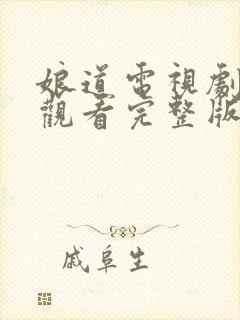 娘道電視劇
觀看完整版
戚阜生